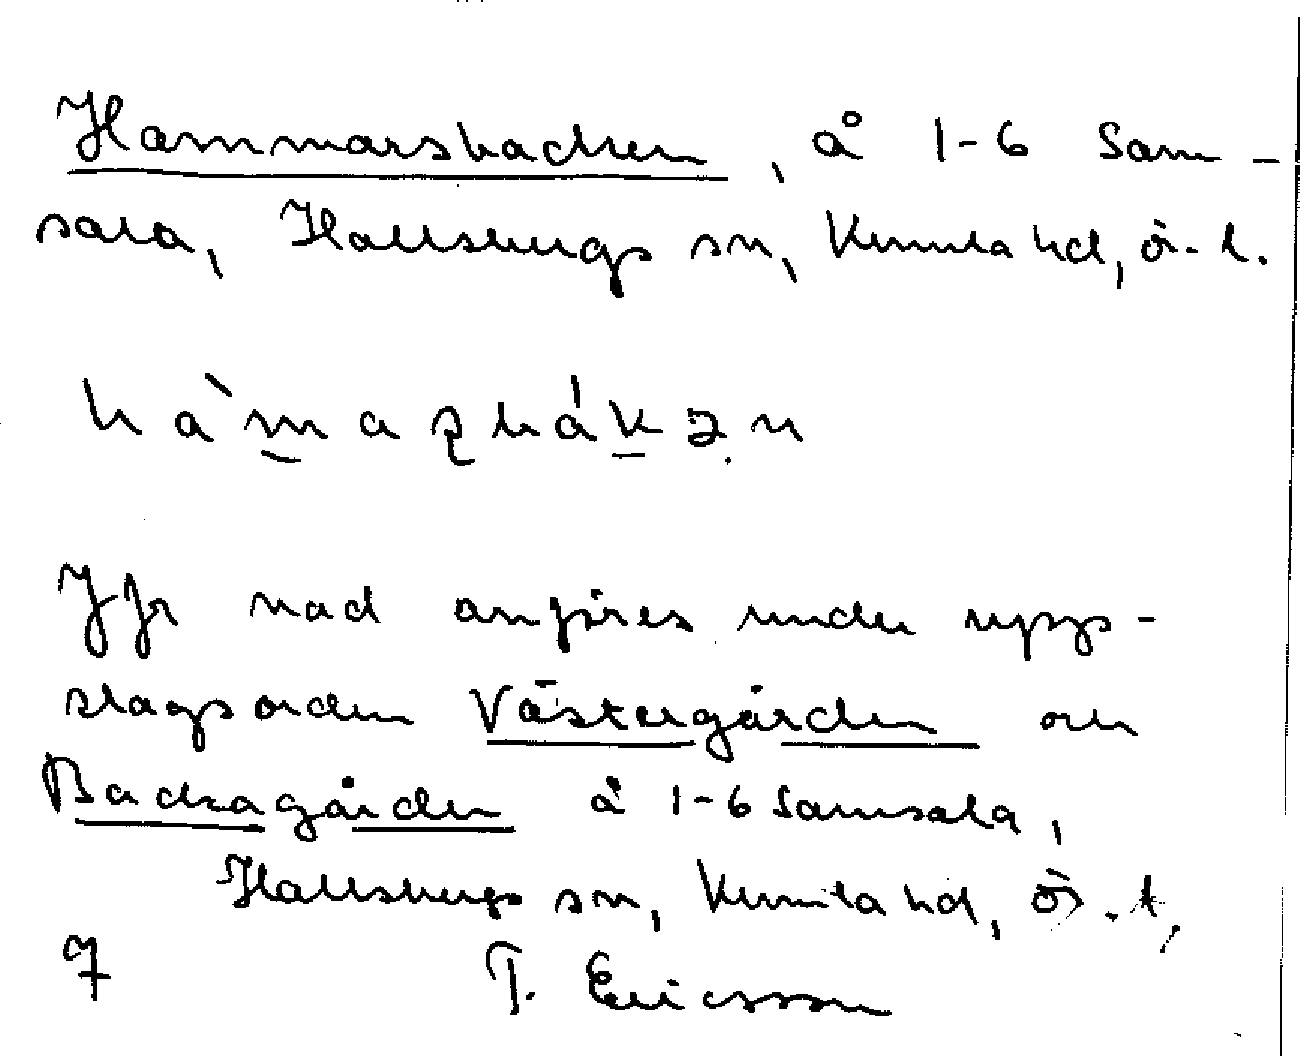 Hammarsbacken, å 1-6 Sam-
sala, Hallsbergs sn, Kumla hd, ör. l.
hàmaʂbákən
Jfr vad anföres under upp-
slagsorden Västergården och
Backagården å 1-6 Samsala,
Hallsbergs sn, Kumla hd, Ör. l,
7 T. Ericsson